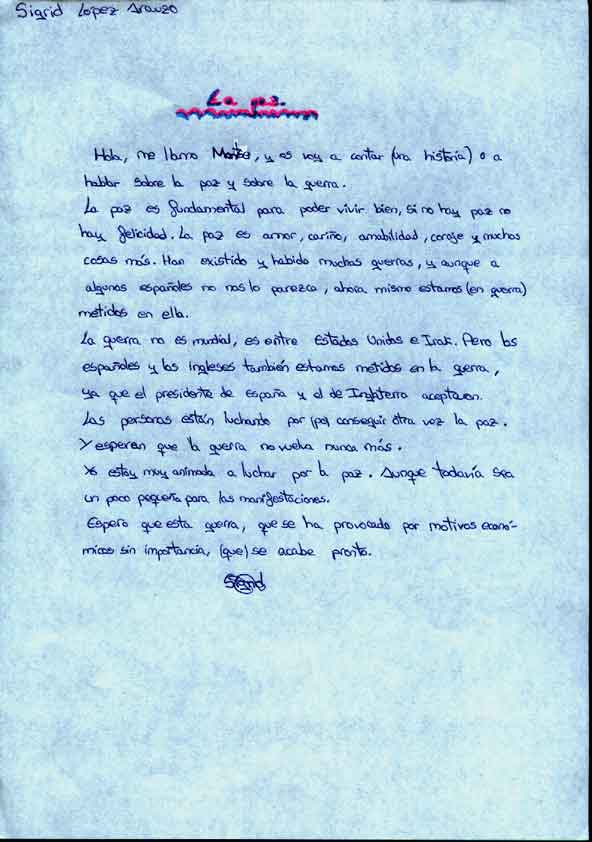 Sigrid López Arauzo
La paz.
Hola, me llamo Montse, y os voy a contar (una historia) o a
hablar sobre la paz y sobre la guerra.
La paz es fundamental para poder vivir bien, si no hay paz no
hay felicidad. La paz es amor, cariño, amabilidad, coraje y muchas
cosas más. Han existido y habido muchas guerras, y aunque a
algunos españoles no nos lo parezca, ahora mismo estamos (en guerra)
metidos en ella.
La guerra no es mundial, es entre Estados Unidos e Irak. Pero los
españoles y los ingleses también estamos metidos en la gerra,
ya que el presidente de españa y el de Inglaterra aceptaron.
Las personas están luchando por (po) conseguir otra vez la paz.
Y esperan que la guerra no vuelva nunca más.
Yo estoy muy animada a luchar por la paz. Aunque todavía sea
un poco pequeña para las manifestaciones.
Espero que esta guerra, que se ha provocado por motivos econó-
micos sin importancia, (que) se acabe pronto.
Sigrid